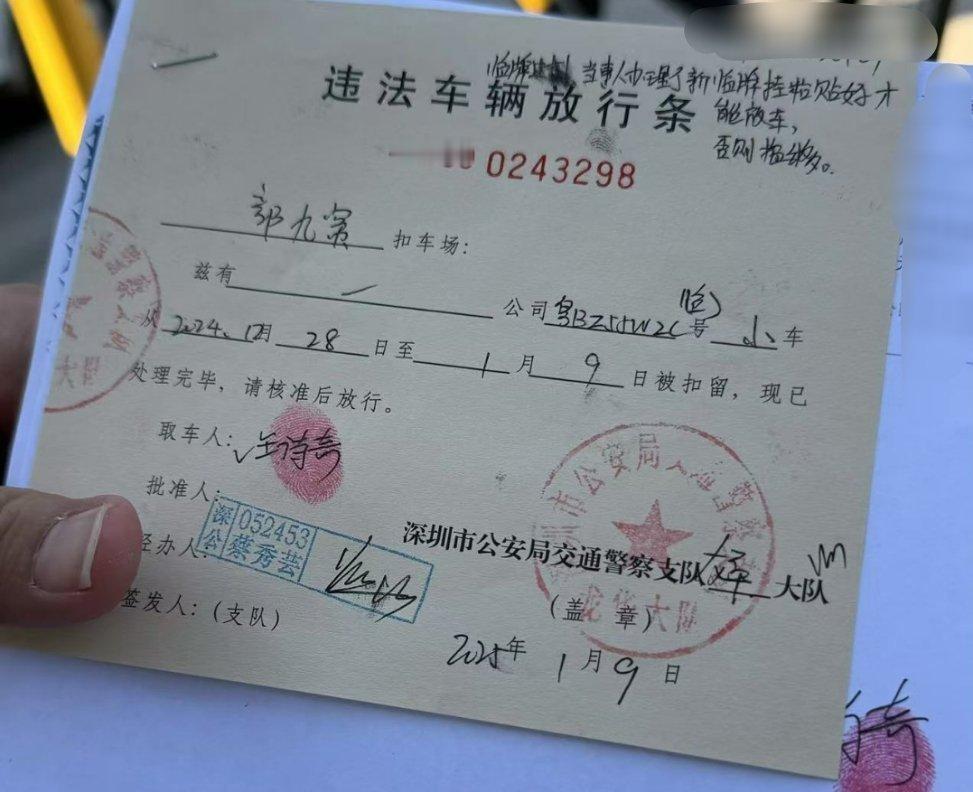 临牌过期 当事人办理了新临牌挂临贴好才
能放车，
否则
违法车辆放行条
0243298
扣车场：
兹有 公司粤BZ55W2C(临)号 小 车
从 2024.12月 28 日至 1 月 9 日被扣留，现已
处理完毕，请核准后放行。
取车人：汪诗奇
批准人
深公 052453 蔡秀芸
经办人
深圳市公安局交通警察支队 大队
签发人：(支队)
(盖 章)
深圳市公安局交通警察
龙华大队
2025年 1 月 9 日